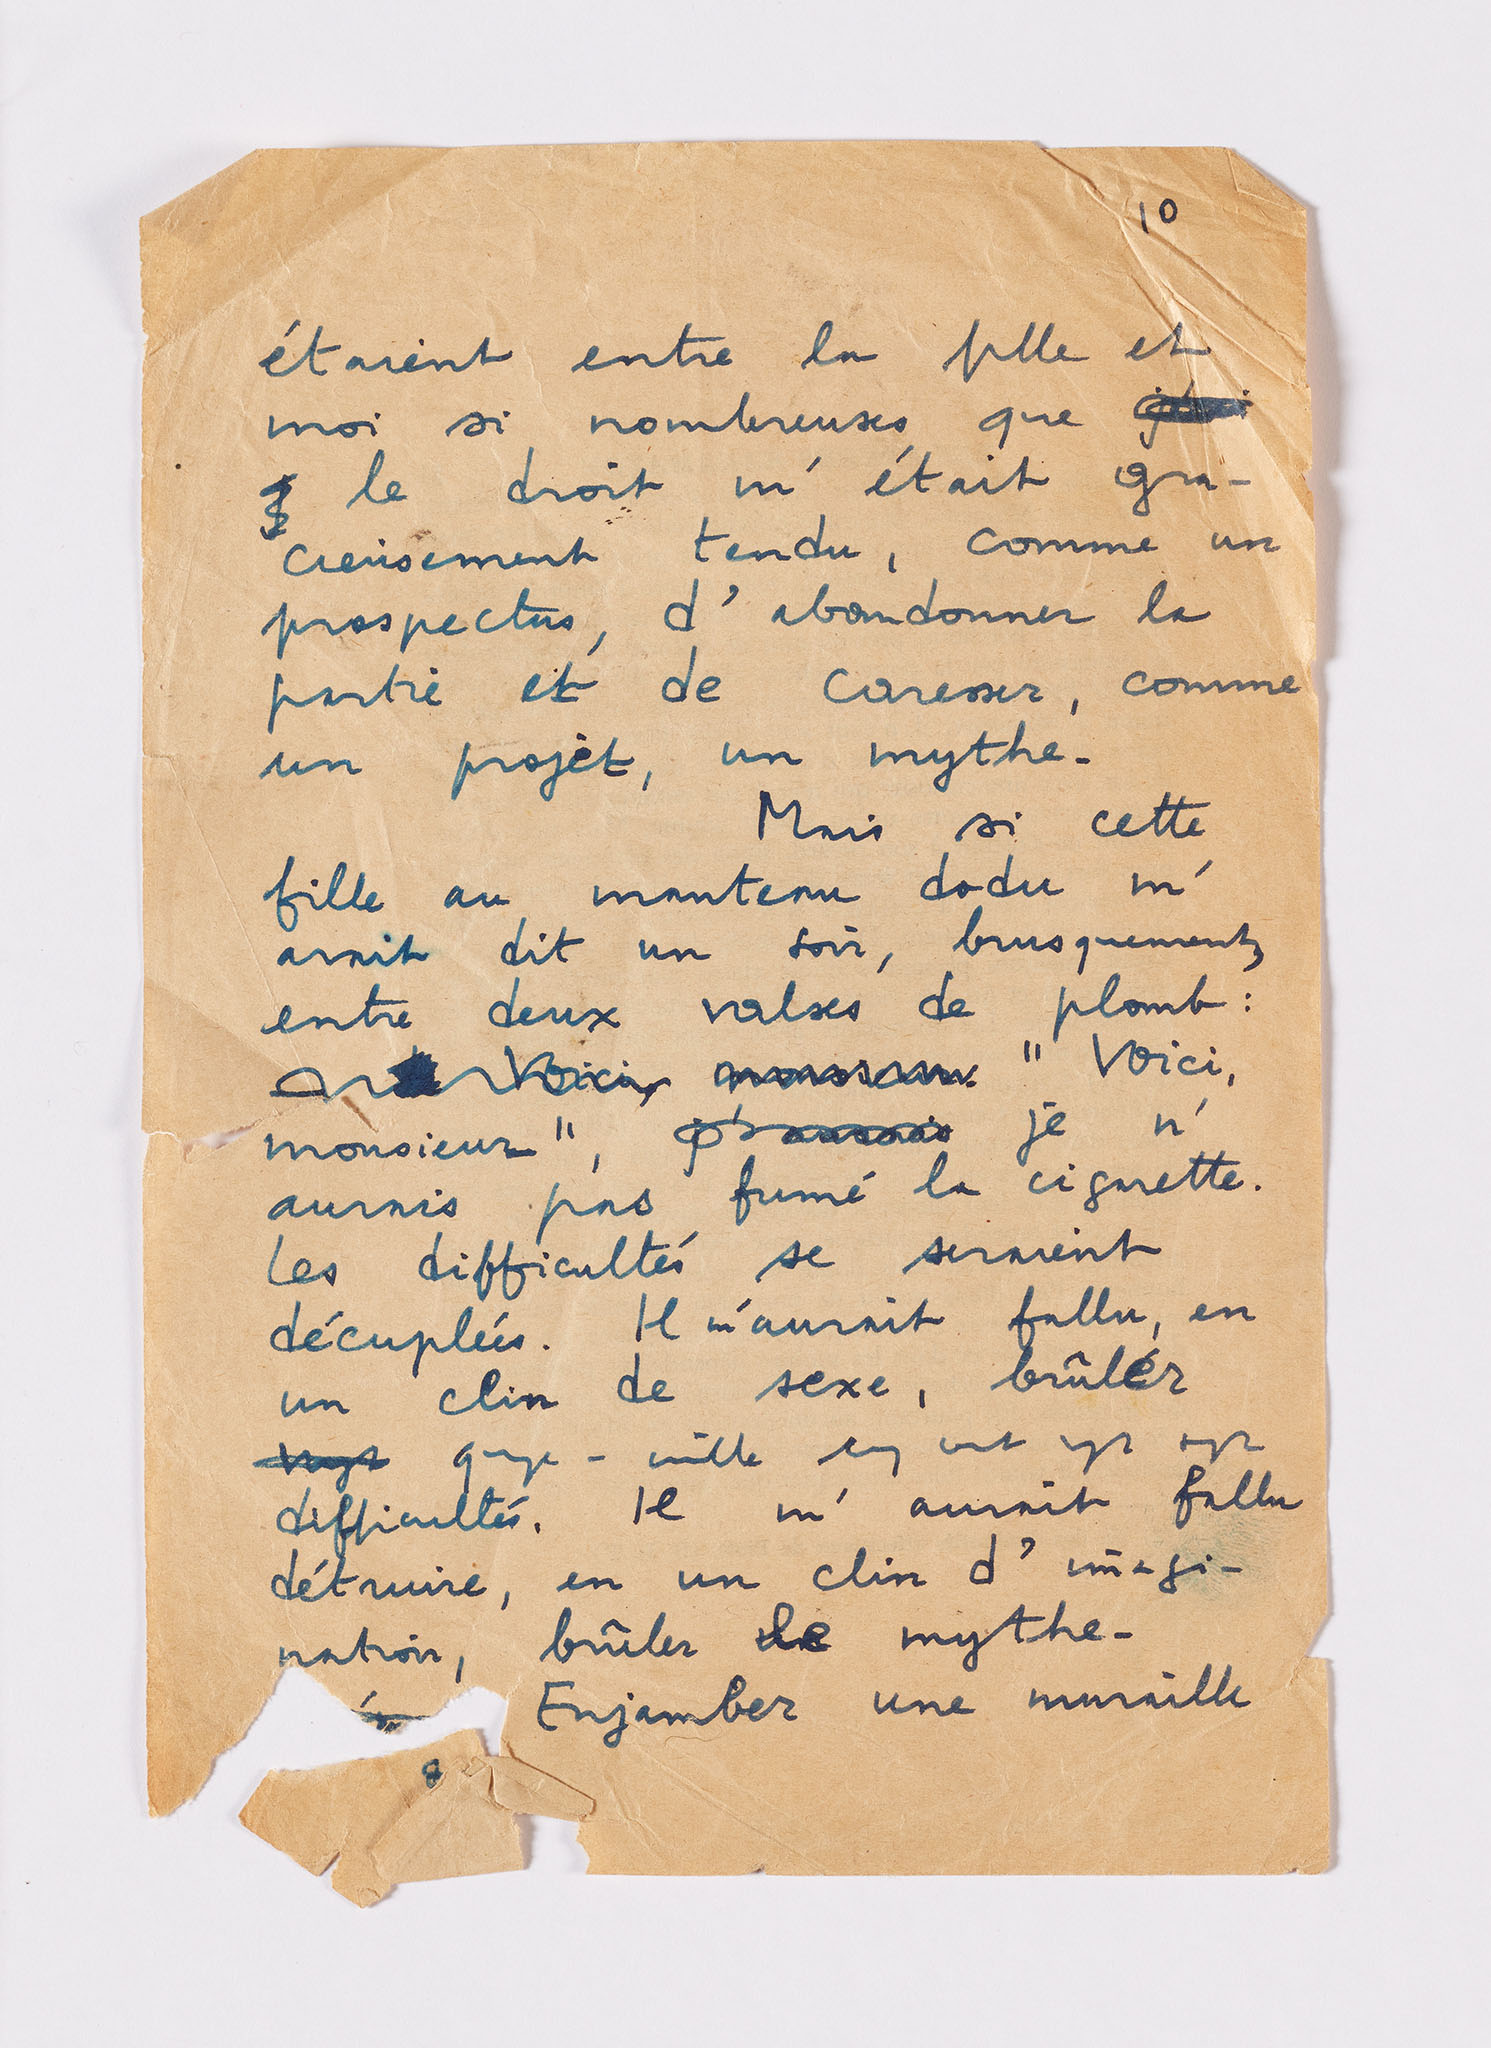 10
étaient entre la fille et
moi si nombreuses que
le droit m' était gra-
cieusement tendu, comme un
prospectus, d' abandonner la
partie et de caresser, comme
un projet, un mythe.
Mais si cette
fille au manteau dodu m'
avait dit un soir, brusquement,
entre deux valses de plomb :
Voici, monsieur. " Voici,
monsieur ", j' aurais je n'
aurais pas fumé la cigarette.
Les difficultés se seraient
décuplées. Il m'aurait fallu, en
un clin de sexe, brûler
mille
difficultés. Il m' aurait fallu
détruire, en un clin d' imagi-
nation, brûler le mythe.
Enjamber une muraille